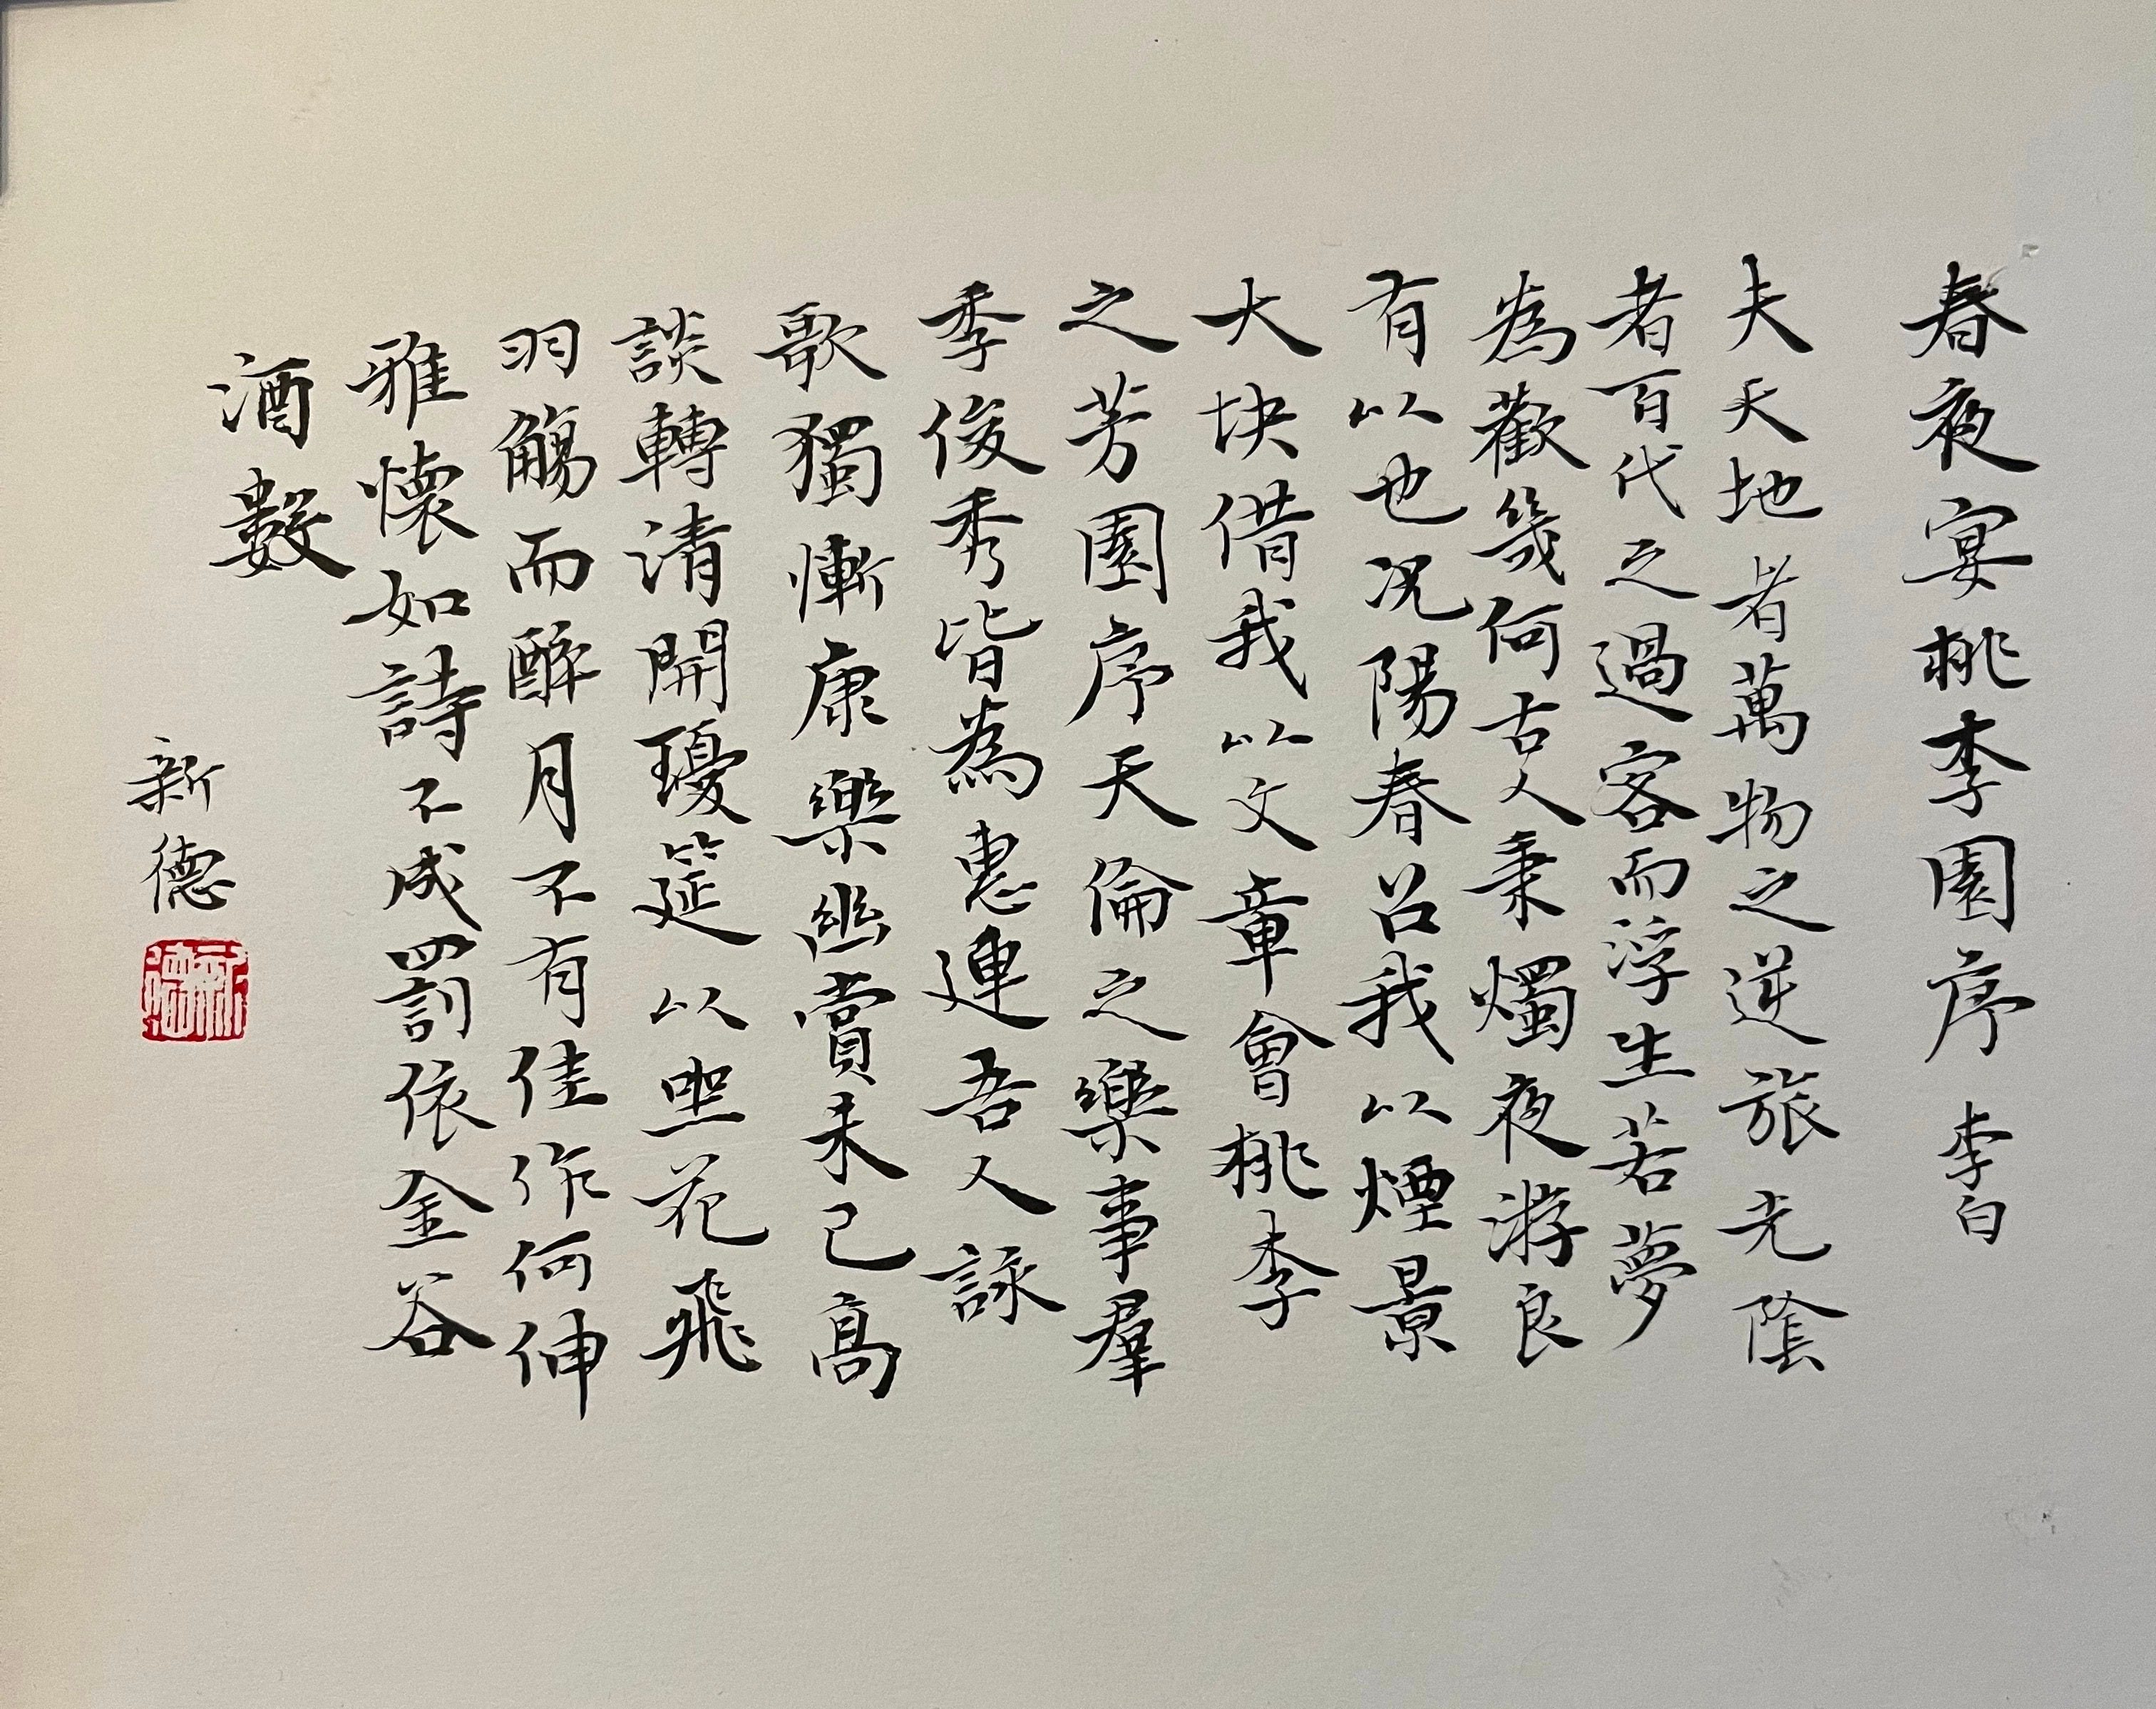 春夜宴桃李園序 李白
夫天地者萬物之逆旅光陰
者百代之過客而浮生若夢
為歡幾何古人秉燭夜游良
有以也况陽春召我以煙景
大块借我以文章會桃李
之芳園序天倫之樂事羣
季俊秀皆為惠連吾人詠
歌獨慚康樂幽賞未已高
談轉清開瓊筵以坐花飛
羽觴而醉月不有佳作何伸
雅懷如詩不成罰依金谷
酒數
新德
新德